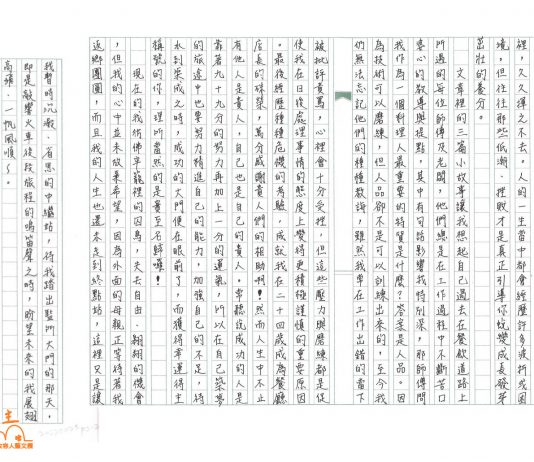 裡，久久揮之不去。人的一生當中都會經歷許多波折或困
境，但往往那些低潮、挫敗才是真正引導你蛻變成長發芽
茁壯的養分。
文章裡的三篇小故事讓我想起自己過去在餐飲道路上
所遇的每位師傅及老闆，他們總是在工作過程中不斷苦口
婆心的教導與提點，其中有句話影響我特別深，那師傅問
我作為一個料理人最重要的特質是什麼？答案是人品。因
為技術可以磨練，但人品卻不是可以訓練出來的，至今我
仍無法忘記他們的種種教誨，雖然我常在工作出錯的當下
被批評責罵，心裡會十分受挫，但這些壓力與磨練都是促
使我在日後處理事情的態度上變得更積極謹慎的重要原因
。最後經歷種種危機的考驗，成就我在二十四歲成為餐廳
店長的殊榮，萬分感謝貴人們的相助啊！然而人生中不止
有他人是貴人，自己也是自己的貴人。常聽說成功的人是
靠著九十九分的努力再加上一分的運氣，所以在自己築夢
的旅途中也要努力精進自己的能力，加強自己的不足，待
水到渠成之時，成功的大門便在眼前了，而獲得幸運得主
稱號的你，理所當然的是實至名歸囉！
現在的我彷彿早籠裡的囚鳥，失去自由、翱翔的機會
，但我的心中並未放棄希望，因為外面的母親正等待著我
返鄉團圓，而且我的人生也還未走到終點站，這裡又是讓
我暫時沉澱、省思的中繼站，待我踏出監所大門的那天，
即是敲響火車後段旅程的鳴笛聲之時，盼望未來的我展翅
高飛、一帆風順～。